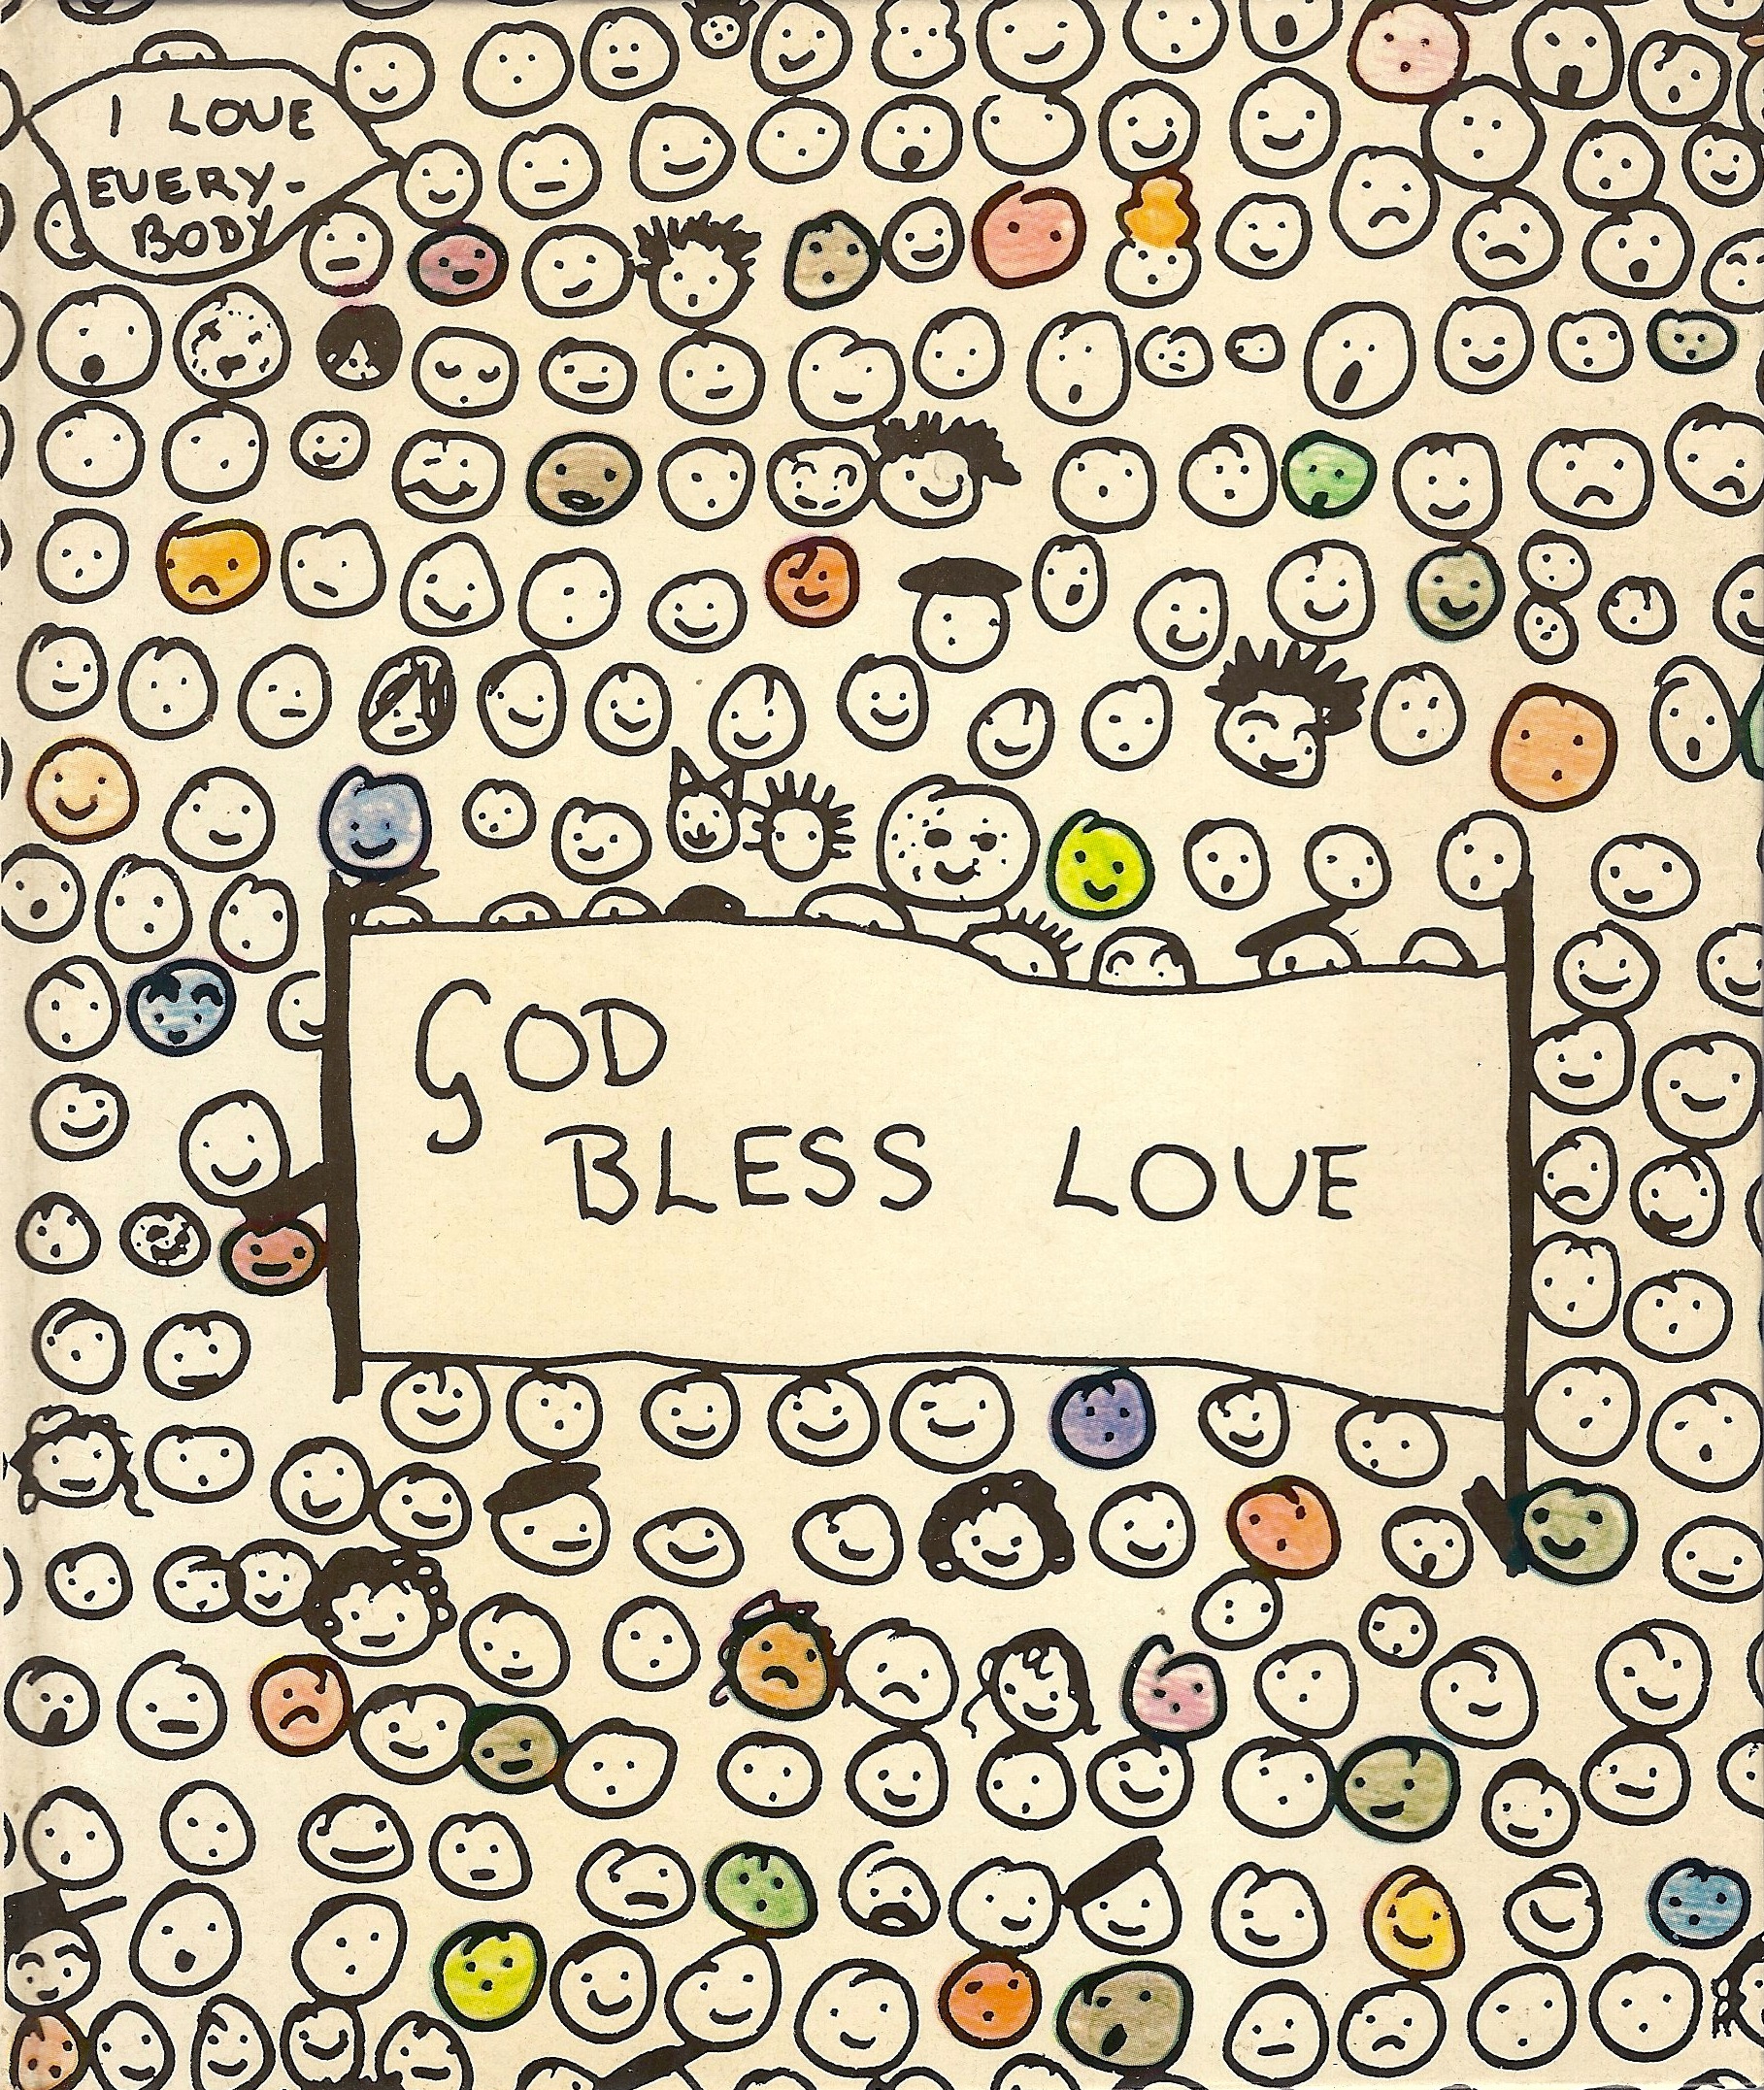 I LOVE
EVERY-
BODY
GOD
BLESS LOVE